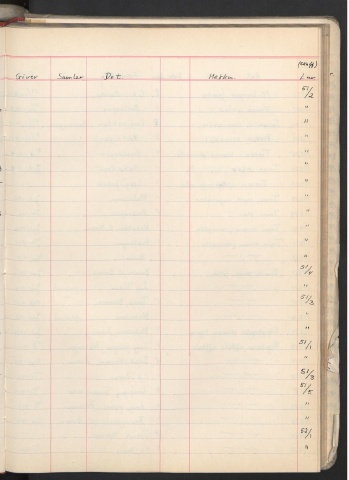 Giver Samler Det Mærker L.nr.
51/2
"
"
"
"
"
"
"
"
"
"
"
51/4
"
51/3
"
"
51/1
"
51/3
51/5
"
"
53/1
"